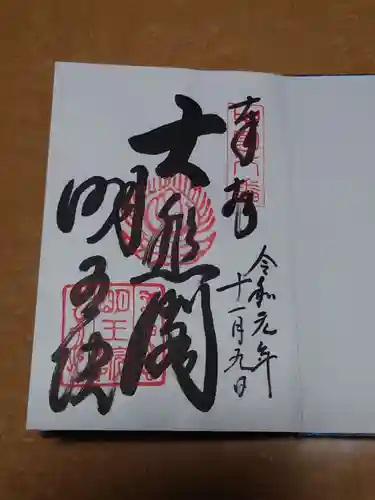 奉拝
令和元年
十一月九日
大悲閣
明王院